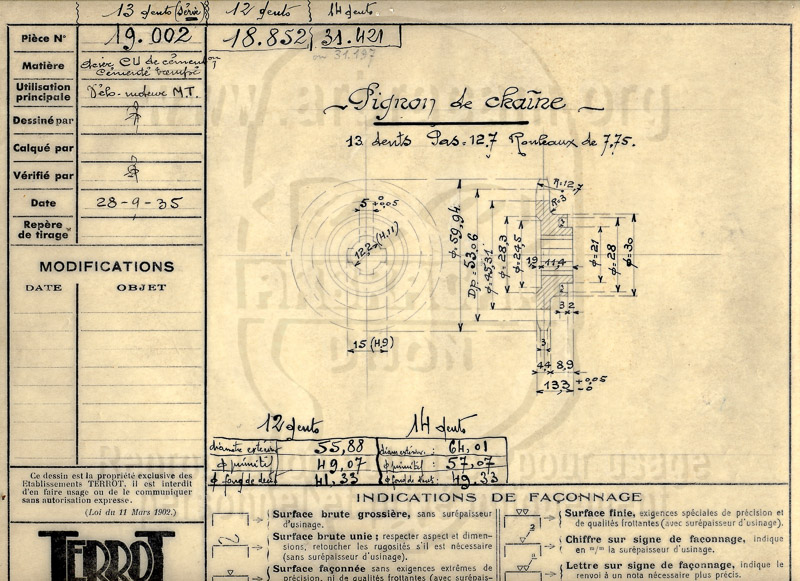 13 dents (Série) 12 dents 14 dents
Pièce N° 19.002 18.852 31.421
ou 31.197
Matière Acier CU de cémenton
Cémenté trempé
Utilisation
principale Vélo-moteur M.T.
Dessiné par
Calqué par
Vérifié par
Date 28-9-35
Repère
de tirage
MODIFICATIONS
DATE OBJET
Pignon de chaîne
13 dents Pas = 12,7 Rouleaux de 7,75.
5 +0,05 0
12,2 (H.11)
15 (H,9)
ϕ. 59,94
D.p= 53,06
ϕ=45,31
ϕ=28,3
ϕ=24,5
R=12,7
R=3
1,9 11,4
ϕ=21
ϕ=28
ϕ=30
3 2
3
4,4 8,9
13,3 +0,05 -0
12 dents 14 dents
diamètre extérieur 55,88 diam extérieur : 64,01
ϕ primitif 49,07 ϕ primitif : 57,07
ϕ fond de dent 41,33 ϕ fond de dent : 49,33
Ce dessin est la propriété exclusive des
Etablissements TERROT, il est interdit
d'en faire usage ou de le communiquer
sans autorisation expresse.
(Loi du 11 Mars 1902.)
TERROT
INDICATIONS DE FAÇONNAGE
Surface brute grossière, sans surépaisseur
d'usinage.
Surface brute unie ; respecter aspect et dimen-
sions, retoucher les rugosités s'il est nécessaire
(sans surépaisseur d'usinage).
Surface façonnée sans exigences extrêmes de
précision, ni de qualités frottantes (avec surépais-
Surface finie, exigences spéciales de précision et
de qualités frottantes (avec surépaisseur d'usinage).
Chiffre sur signe de faconnage, indique
en m/m la surépaisseur d'usinage.
Lettre sur signe de façonnage, indique le
renvoi à un nota nécessaire plus précis